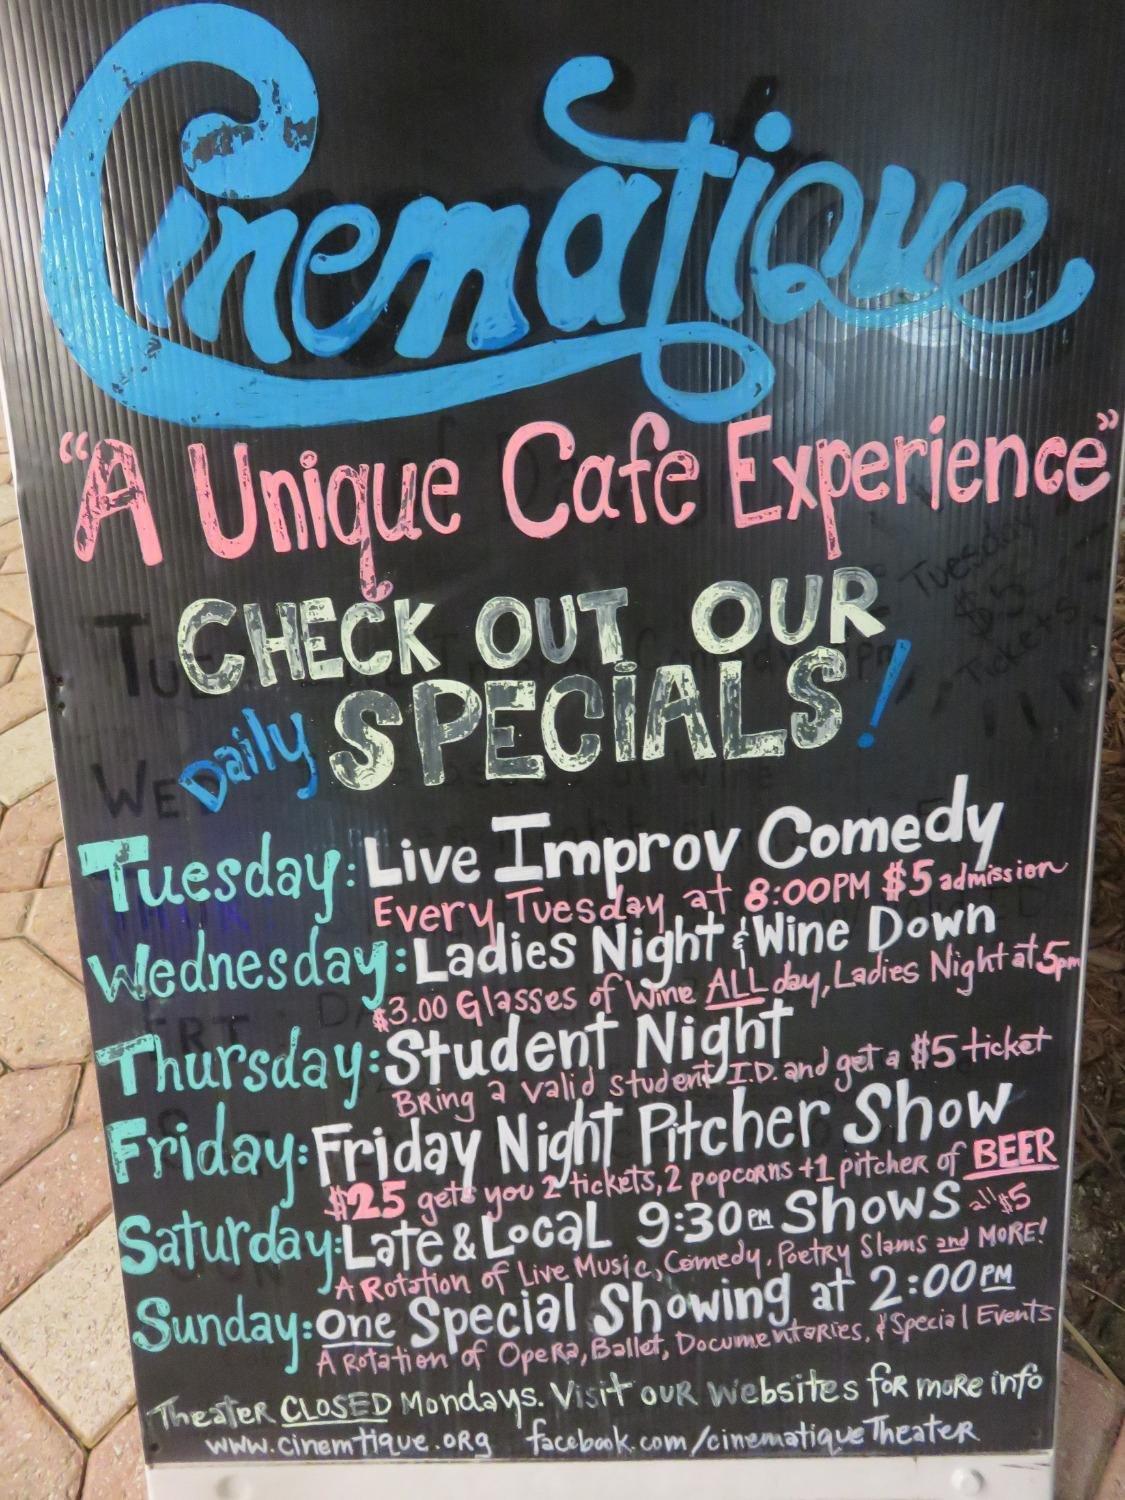 Cinematique
"A Unique Cafe Experience"
CHECK OUT OUR
Daily SPECiALS!
Tuesday: Live Improv Comedy
Every Tuesday at 8:00PM $5 admission
Wednesday: Ladies Night & Wine Down
$3.00 Glasses of Wine ALL day, Ladies Night at 5pm
Thursday: Student Night
Bring a valid student I.D. and get a $5 ticket
Friday: Friday Night Pitcher Show
$25 gets you 2 tickets, 2 popcorns +1 pitcher of BEER
Saturday: Late & Local 9:30PM Shows all $5
A Rotation of Live Music, Comedy, Poetry Slams and MORE!
Sunday: One Special Showing at 2:00PM
A Rotation of Opera, Ballet, Documentaries, & Special Events
Theater CLOSED Mondays. Visit our websites for more info
www.cinemtique.org facebook.com/cinematiqueTheater
Tuesday
$5
Tickets